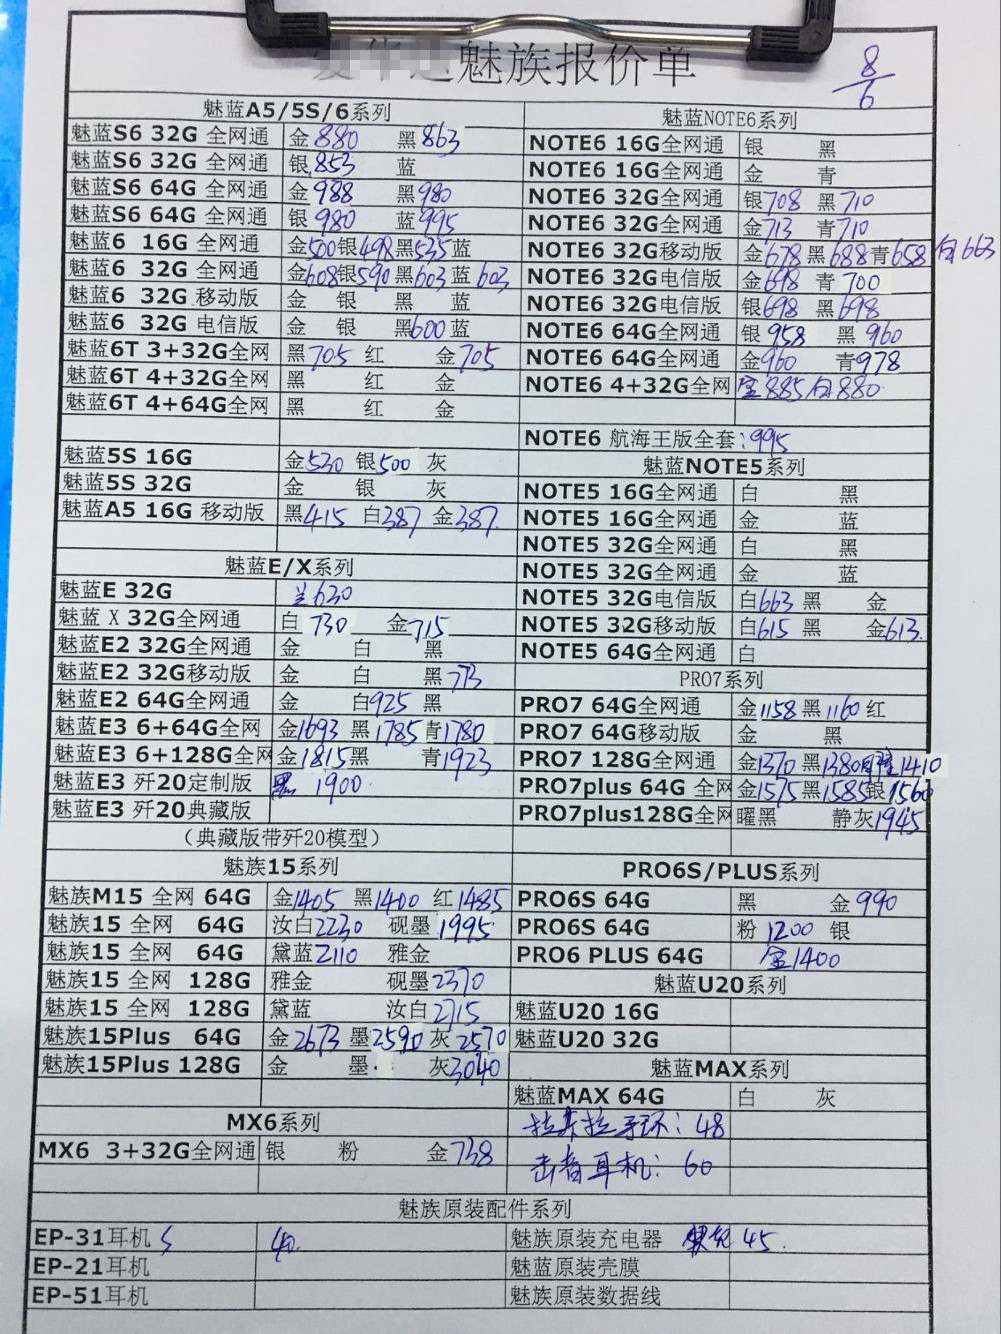 魅族报价单
8/6
魅蓝A5/5S/6系列
魅蓝S6 32G 全网通 金880 黑863
魅蓝S6 32G 全网通 银853 蓝
魅蓝S6 64G 全网通 金988 黑980
魅蓝S6 64G 全网通 银980 蓝995
魅蓝6 16G 全网通 金500银498黑535蓝
魅蓝6 32G 全网通 金608银590黑603蓝603
魅蓝6 32G 移动版 金 银 黑 蓝
魅蓝6 32G 电信版 金 银 黑600蓝
魅蓝6T 3+32G全网 黑705 红 金705
魅蓝6T 4+32G全网 黑 红 金
魅蓝6T 4+64G全网 黑 红 金
魅蓝5S 16G 金530 银500 灰
魅蓝5S 32G 金 银 灰
魅蓝A5 16G 移动版 黑415 白387 金387
魅蓝E/X系列
魅蓝E 32G 兰630
魅蓝X 32G全网通 白730 金715
魅蓝E2 32G全网通 金 白 黑
魅蓝E2 32G移动版 金 白 黑773
魅蓝E2 64G全网通 金 白925 黑
魅蓝E3 6+64G全网 金1693 黑1785青1780
魅蓝E3 6+128G全网 金1815黑 青1923
魅蓝E3 歼20定制版 黑 1900
魅蓝E3 歼20典藏版
（典藏版带歼20模型）
魅族15系列
魅族M15 全网 64G 金1405 黑1400 红1485
魅族15 全网 64G 汝白2230 砚墨1995
魅族15 全网 64G 黛蓝2110 雅金
魅族15 全网 128G 雅金 砚墨2370
魅族15 全网 128G 黛蓝 汝白2715
魅族15Plus 64G 金2673 墨2590 灰2570
魅族15Plus 128G 金 墨 灰3040
MX6系列
MX6 3+32G全网通 银 粉 金738
魅蓝NOTE6系列
NOTE6 16G全网通 银 黑
NOTE6 16G全网通 金 青
NOTE6 32G全网通 银708 黑710
NOTE6 32G全网通 金713 青710
NOTE6 32G移动版 金678黑688青658白663
NOTE6 32G电信版 金698 青700
NOTE6 32G电信版 银698 黑698
NOTE6 64G全网通 银958 黑960
NOTE6 64G全网通 金960 青978
NOTE6 4+32G全网 金885白880
NOTE6 航海王版全套：995
魅蓝NOTE5系列
NOTE5 16G全网通 白 黑
NOTE5 16G全网通 金 蓝
NOTE5 32G全网通 白 黑
NOTE5 32G全网通 金 蓝
NOTE5 32G电信版 白663 黑 金
NOTE5 32G移动版 白615 黑 金613
NOTE5 64G全网通 白
PRO7系列
PRO7 64G全网通 金1158黑1160红
PRO7 64G移动版 金 黑
PRO7 128G全网通 金1370黑1380 1410
PRO7plus 64G 全网 金1575黑1585银1560
PRO7plus128G全网 曜黑 静灰1945
PRO6S/PLUS系列
PRO6S 64G 黑 金990
PRO6S 64G 粉1200 银
PRO6 PLUS 64G 金1400
魅蓝U20系列
魅蓝U20 16G
魅蓝U20 32G
魅蓝MAX系列
魅蓝MAX 64G 白 灰
拉手环：48
击音耳机：60
魅族原装配件系列
EP-31耳机 40
EP-21耳机
EP-51耳机
魅族原装充电器 45
魅蓝原装壳膜
魅族原装数据线